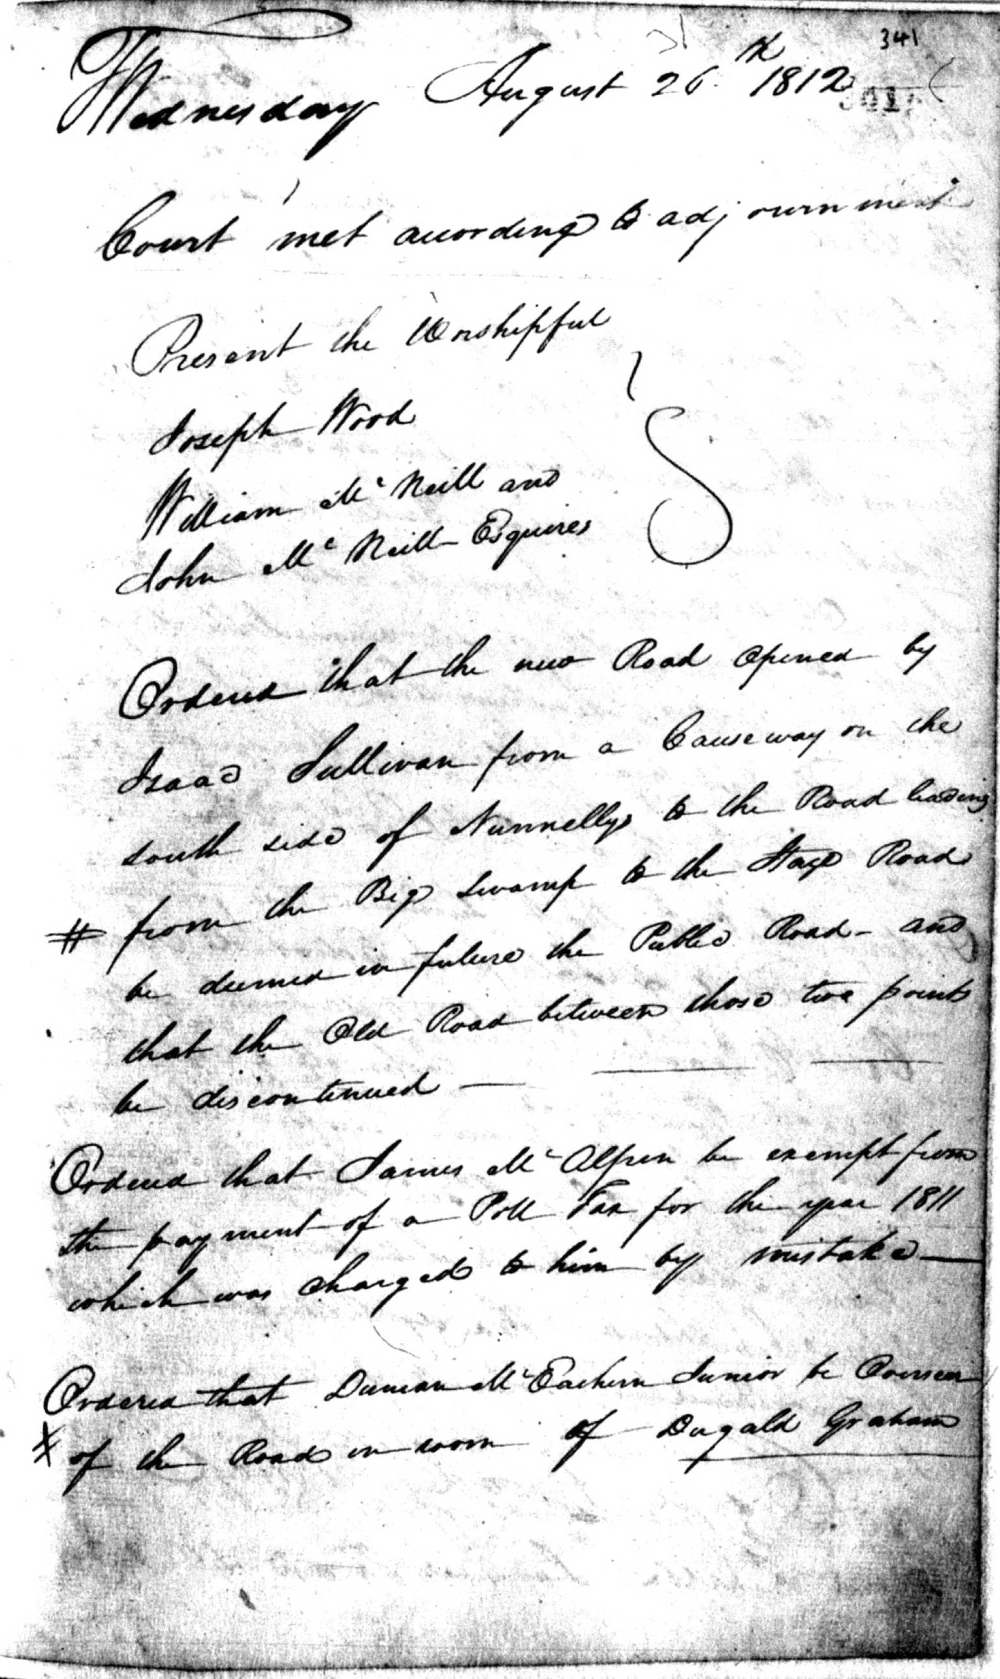 341
Wednesday August 26th 1812
Court met according to adjournment
Present the Worshipful
Joseph Wood
William Mc Neill and
John Mc Neill Esquires
Ordered that the new Road opened by
Isaac Sullivan from a Causeway on the
south side of Nunnellys to the Road leading
from the Big Swamp to the Stage Road
be deemed in future the Public Road - and
that the Old Road between those two points
be discontinued
Ordered that James Mc Alpen be exempt from
the payment of a Poll Tax for the year 1811
which was charged to him by mistake
Ordered that Duncan Mc Eachern Junior be Overseer
of the Road in room of Dugald Graham